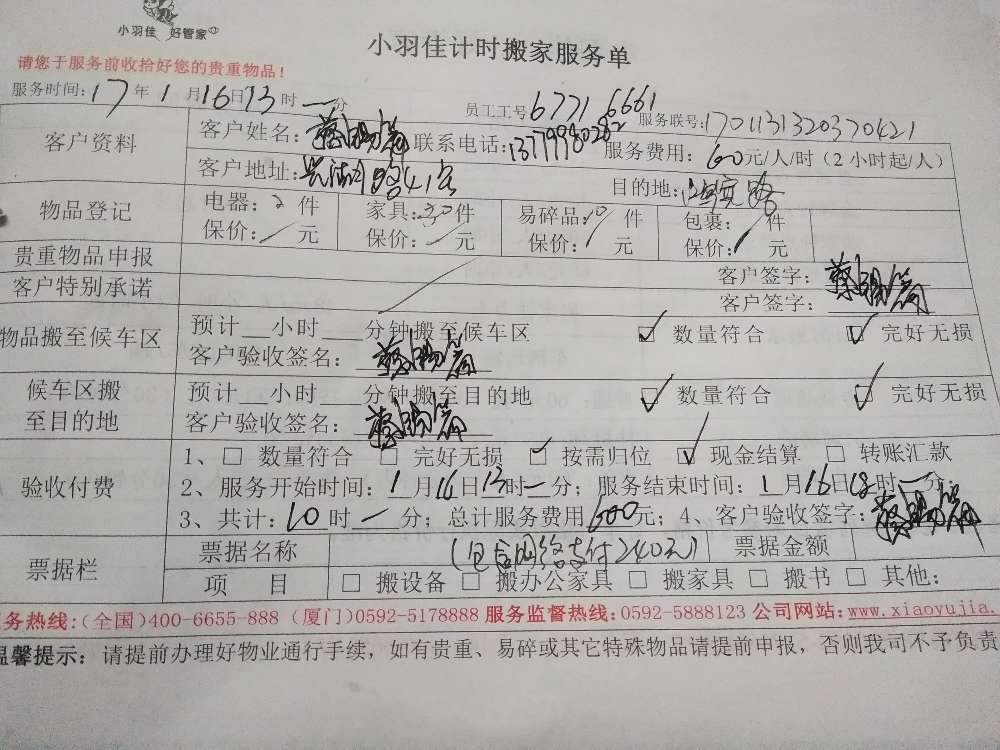 小羽佳 好管家
小羽佳计时搬家服务单
请您于服务前收拾好您的贵重物品！
服务时间：17年1月16日13时一分 员工工号6771 6661 服务联号：170113132037 0421
客户资料 客户姓名： 联系电话：13779980282 服务费用：60元/人/时（2小时起/人）
客户地址： 目的地：
物品登记 电器：2件 家具：30件 易碎品：10件 包裹：/件
保价：/元 保价：/元 保价：/元 保价：/元
贵重物品申报 客户签字：
客户特别承诺 客户签字：
物品搬至候车区 预计__小时__分钟搬至候车区 ☑ 数量符合 ☑ 完好无损
客户验收签名：
候车区搬至目的地 预计__小时__分钟搬至目的地 ☑ 数量符合 ☑ 完好无损
客户验收签名：
验收付费 1、□ 数量符合 □ 完好无损 ☑ 按需归位 ☑ 现金结算 □ 转账汇款
2、服务开始时间：1月16日13时一分；服务结束时间：1月16日18时一分；
3、共计：10时一分；总计服务费用600元；4、客户验收签字：
票据栏 票据名称 （包含网络支付240元） 票据金额
项 目 □ 搬设备 □ 搬办公家具 □ 搬家具 □ 搬书 □ 其他：
务热线：（全国）400-6655-888（厦门）0592-5178888 服务监督热线：0592-5888123 公司网站：www.xiaoyujia.
温馨提示：请提前办理好物业通行手续，如有贵重、易碎或其它特殊物品请提前申报，否则我司不予负责